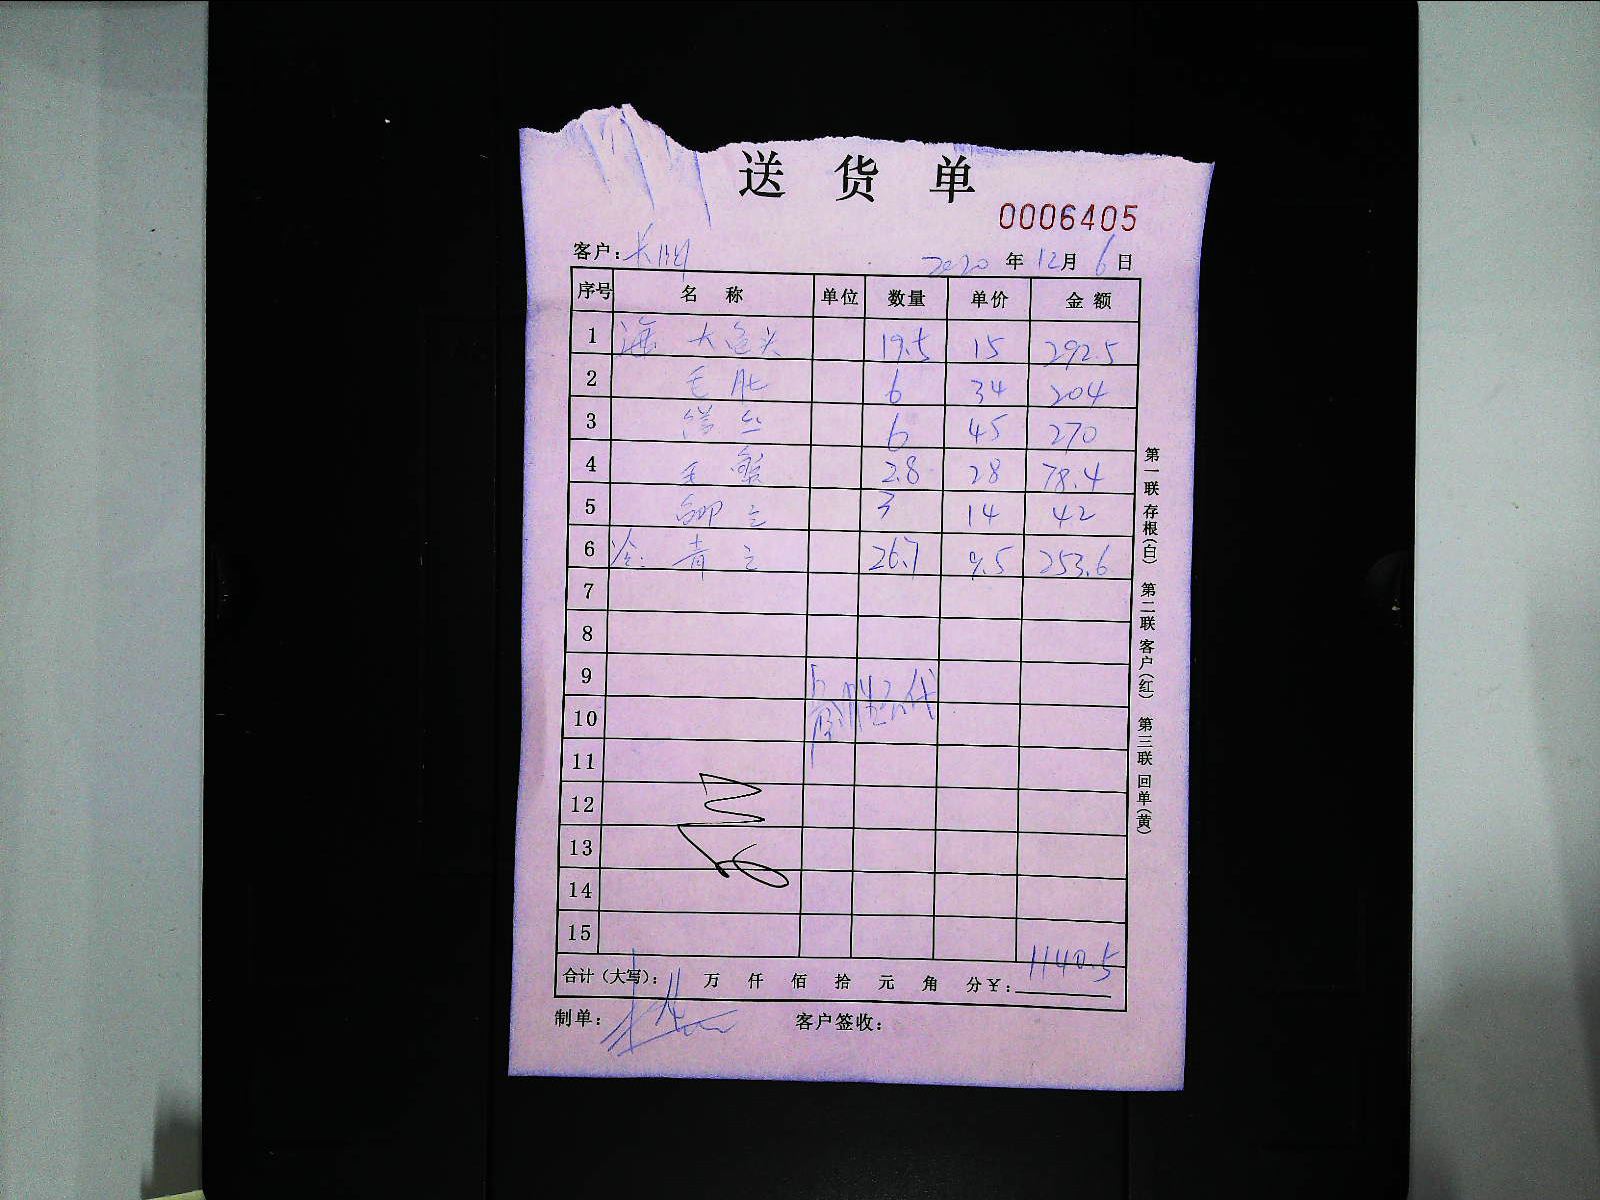 送 货 单
0006405
客户:
2020 年 12月 6日
序号 名 称 单位 数量 单价 金 额
1 海 大 头 19.5 15 292.5
2 毛肚 6 34 204
3 丝 6 45 270
4 毛 2.8 28 78.4
5 3 14 42
6 冷: 青 26.7 9.5 253.6
7
8
9
10
11
12
13
14
15
合计(大写): 万 仟 佰 拾 元 角 分¥: 1140.5
制单: 客户签收:
第一联 存根(白) 第二联 客户(红) 第三联 回单(黄)